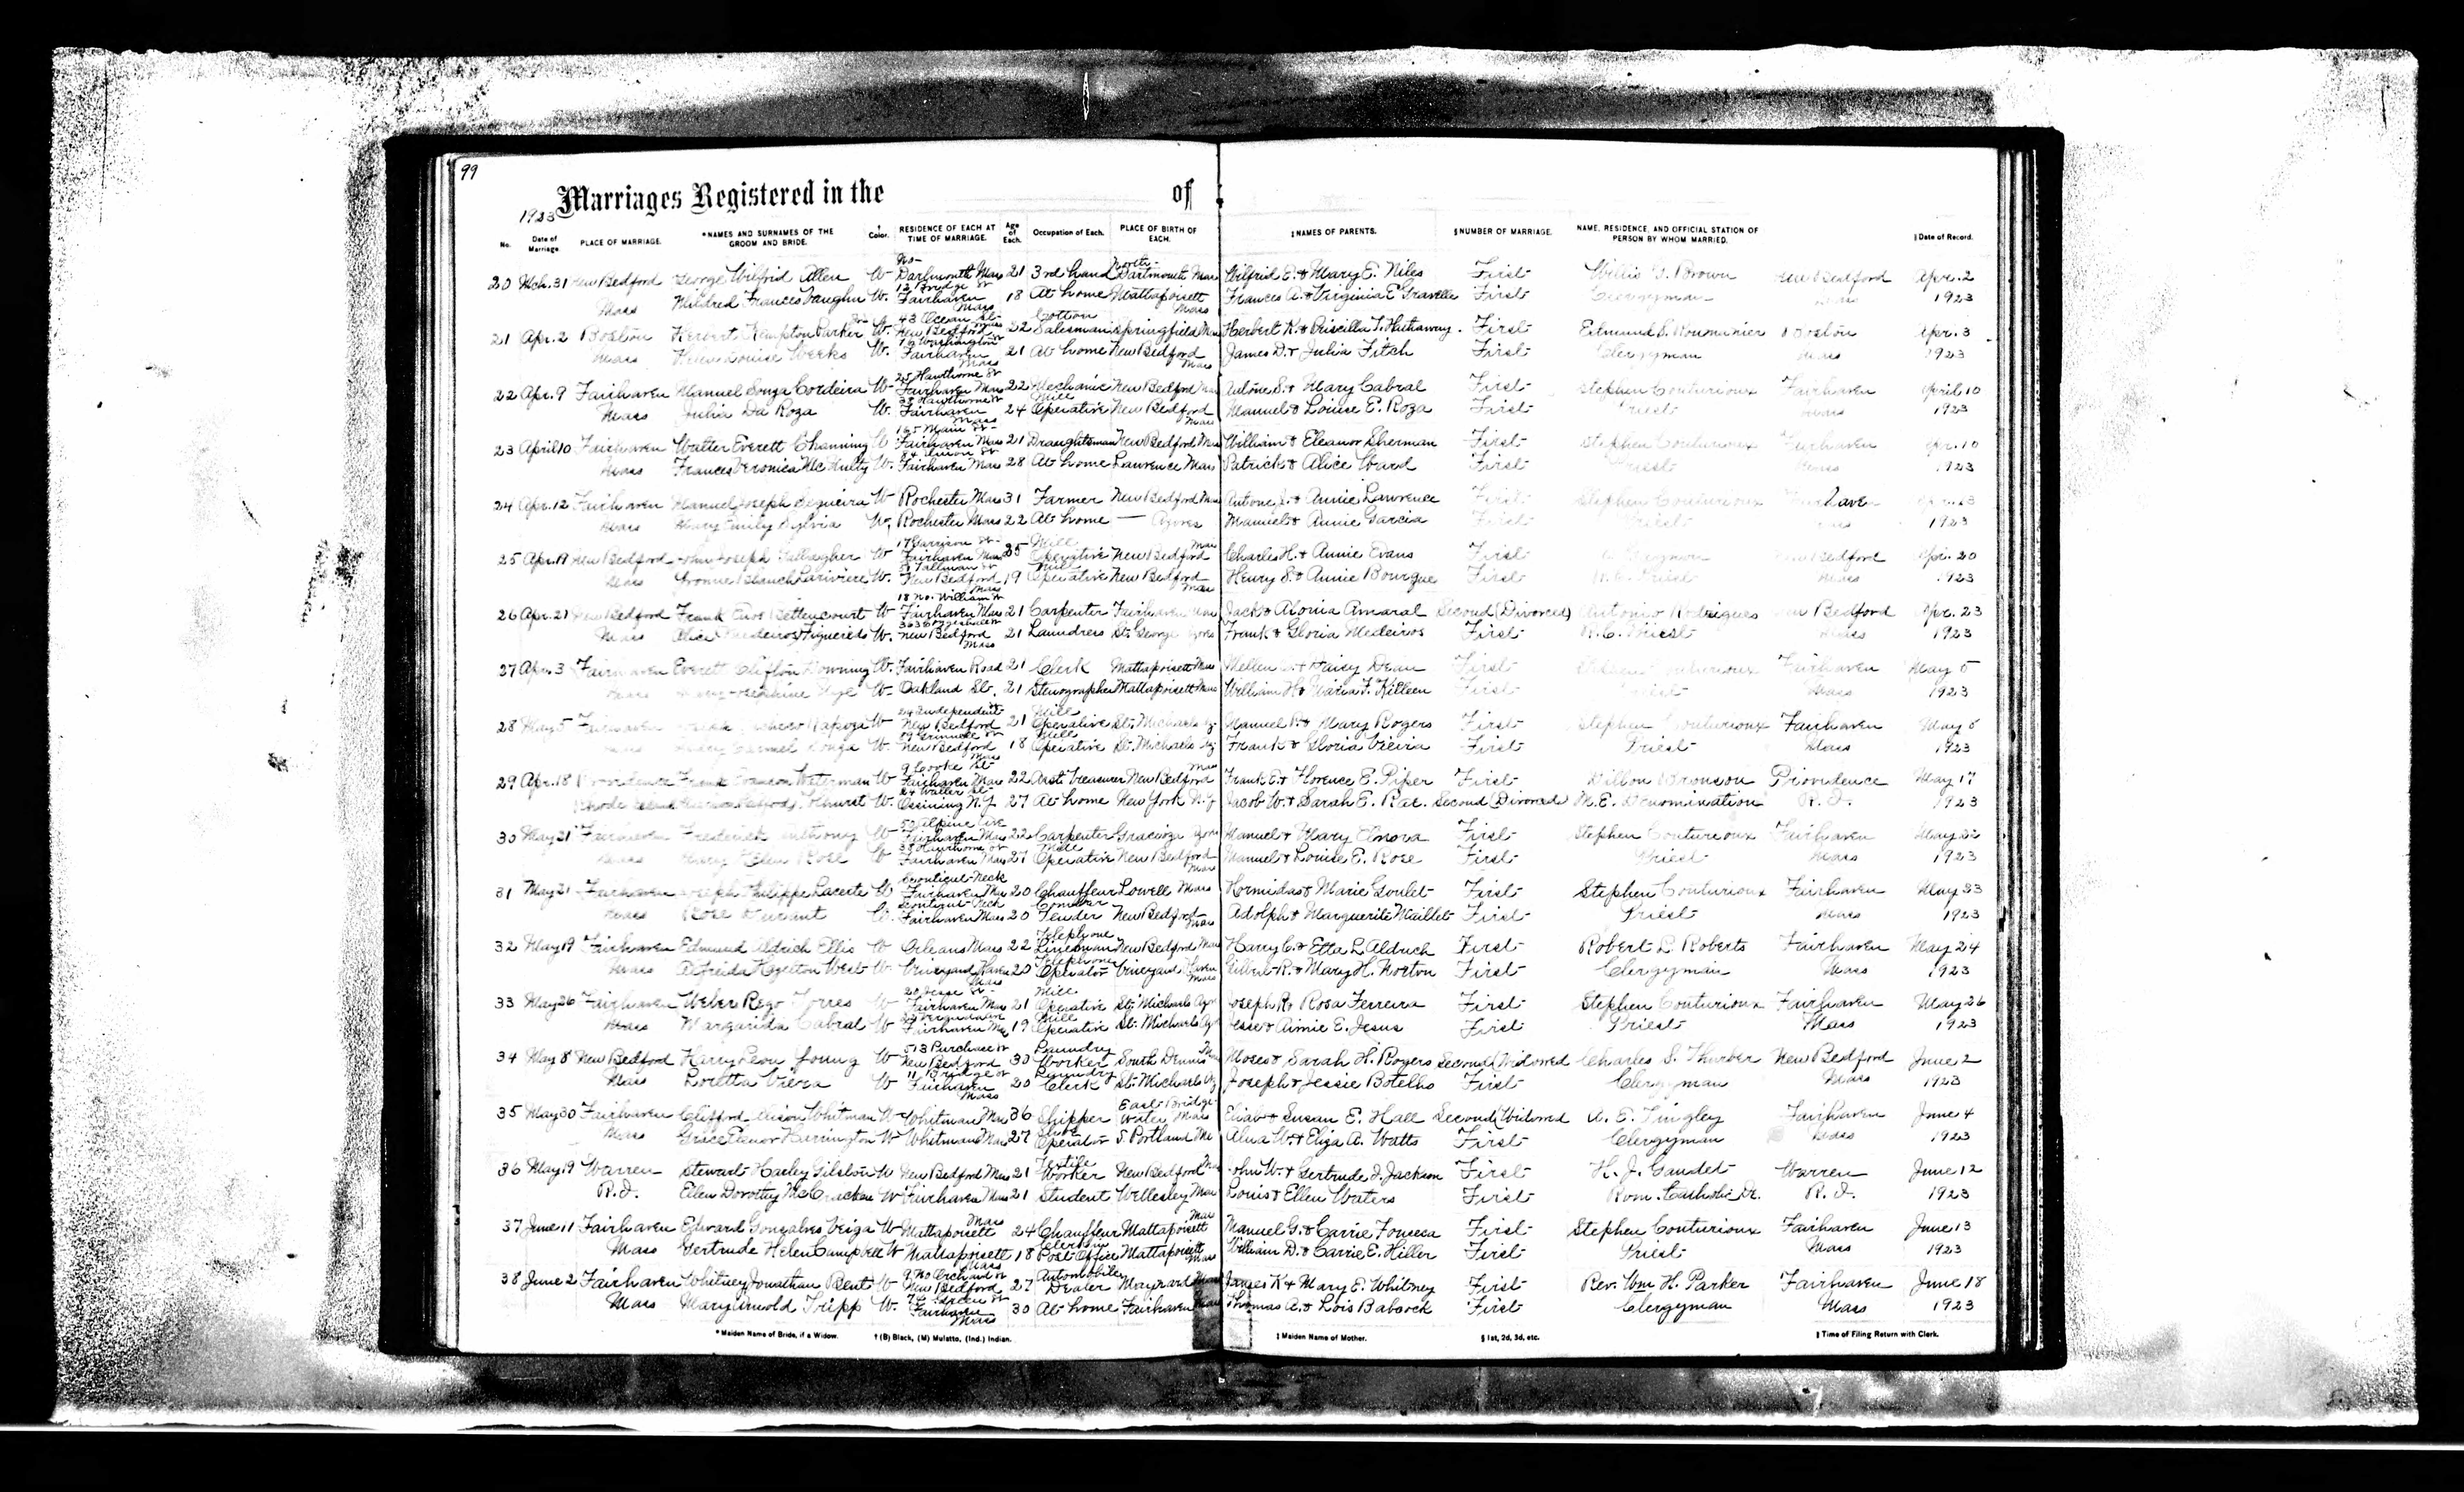 99
Marriages Registered in the of
1923
No. Date of Marriage. PLACE OF MARRIAGE. *NAMES AND SURNAMES OF THE GROOM AND BRIDE. † Color. RESIDENCE OF EACH AT TIME OF MARRIAGE. Age of Each. Occupation of Each. PLACE OF BIRTH OF EACH. ‡NAMES OF PARENTS. §NUMBER OF MARRIAGE. NAME, RESIDENCE, AND OFFICIAL STATION OF PERSON BY WHOM MARRIED. ‖Date of Record.
20 Mch. 31 New Bedford George Wilfrid Allen W No- Dartmouth Mass 21 3rd hand North Dartmouth Mass Wilfrid E. & Mary E. Niles First Willis Brown New Bedford Apr. 2
Mass Mildred Frances Vaughn W. 12 Bridge St Fairhaven Mass 18 At home Mattapoisett Mass Frances A. & Virginia E First Clergyman Mass 1923
21 Apr. 2 Boston Herbert Kempton Parker W. 43 Ocean St New Bedford Mass 22 Cotton Salesman Springfield Mass Herbert K. & Priscilla T. Hathaway First Edmund Boston Apr. 3
Mass Louise Weeks W. Washington St Fairhaven Mass 21 At home New Bedford Mass James D. & Julia Fitch First Clergyman Mass 1923
22 Apr. 9 Fairhaven Manuel Souza Cordeira W 25 Hawthorne St Fairhaven Mass 22 Mechanic New Bedford Mass Antone S. & Mary Cabral First Stephen Couturioux Fairhaven April 10
Mass Julia Da Roza W. Hawthorne St Fairhaven Mass 24 Mill Operative New Bedford Mass Manuel & Louise E. Roza First Priest Mass 1923
23 April 10 Fairhaven Walter Everett Channing W 165 Main St Fairhaven Mass 21 Draughtsman New Bedford Mass William & Eleanor Sherman First Stephen Couturioux Fairhaven Apr. 10
Mass Frances Veronica McNulty W. Union St Fairhaven Mass 28 At home Lawrence Mass Patrick & Alice Ward First Priest Mass 1923
24 Apr. 12 Fairhaven Manuel Joseph Sequeira W Rochester Mass 31 Farmer New Bedford Mass Antone J. & Annie Lawrence First Stephen Couturioux Fairhaven Apr. 13
Mass Mary Emily Sylvia W. Rochester Mass 22 At home — Azores Manuel & Annie Garcia First Priest Mass 1923
25 Apr. 19 New Bedford John Joseph Gallagher W 17 Garrison St Fairhaven Mass 25 Mill Operative New Bedford Mass Charles H. & Annie Evans First New Bedford Apr. 20
Mass Yvonne Blanch Lariviere W. Tallman St New Bedford Mass 19 Mill Operative New Bedford Mass Henry S. & Annie Bourque First R.C. Priest Mass 1923
26 Apr. 21 New Bedford Frank Bettencourt W 18 No. William St Fairhaven Mass 21 Carpenter Fairhaven Mass Jack & Amaral Second (Divorced) Antonio Rodrigues New Bedford Apr. 23
Mass Alice Medeiros Figueredo W. New Bedford Mass 21 Laundress St. George Azores Frank & Gloria Medeiros First R.C. Priest Mass 1923
27 Apr. 3 Fairhaven Everett Clifton Downing W. Fairhaven Road 21 Clerk Mattapoisett Mass & Daisy Dean First Stephen Couturioux Fairhaven May 5
Mass Mary W. Oakland St. 21 Stenographer Mattapoisett Mass William H & Maria F. Killeen First Priest Mass 1923
28 May 5 Fairhaven Joseph Raposo W Independent St New Bedford 21 Mill Operative St. Michaels Az Manuel R. & Mary Rogers First Stephen Couturioux Fairhaven May 5
Mass Carmel Souza W. Grinnell St New Bedford Mass 18 Mill Operative St. Michaels Az Frank & Gloria Vieira First Priest Mass 1923
29 Apr. 18 Providence Frank Waterman W 9 Cooke St Fairhaven Mass 22 Asst Treasurer New Bedford Mass Frank E. & Florence E. Piper First Dillon Bronson Providence May 17
Rhode Island W. Waller St Ossining N.Y 27 At home New York N.Y Jacob W. & Sarah E. Rae. Second (Divorced) M.E. Denomination R.I. 1923
30 May 21 Fairhaven Frederick Anthony W Alpine Ave Fairhaven Mass 22 Carpenter Gracioza Azores Manuel & Mary First Stephen Coutureoux Fairhaven May 22
Mass Mary Helen Rose W Hawthorne St Fairhaven Mass 27 Mill Operative New Bedford Mass Manuel & Louise E. Rose First Priest Mass 1923
31 May 21 Fairhaven Joseph Philippe Lacerte W Sconticut Neck Fairhaven Mass 20 Chauffeur Lowell Mass Hormidas & Marie Goulet First Stephen Couturioux Fairhaven May 23
Mass Rose Durant W. Sconticut Neck Fairhaven Mass 20 Comber Tender New Bedford Mass Adolph & Marguerite Maillet First Priest Mass 1923
32 May 19 Fairhaven Edmund Aldrich Ellis W Orleans Mass 22 Telephone Lineman New Bedford Mass Harry C. & Etta L. Aldrich First Robert L. Roberts Fairhaven May 24
Mass West W. Vineyard Haven Mass 20 Telephone Operator Vineyard Haven Mass R. & Mary H. Norton First Clergyman Mass 1923
33 May 26 Fairhaven Weber Rego Torres W 20 Jesse St Fairhaven Mass 21 Mill Operative St. Michaels Azo Joseph R & Rosa Ferreira First Stephen Couturioux Fairhaven May 26
Mass Margarida Cabral W Fairhaven Ma 19 Mill Operative St. Michaels Az Jesse & Aimie E. Jesus First Priest Mass 1923
34 May 8 New Bedford Harry Leon Young W 513 Purchase St New Bedford 30 Laundry Worker South Dennis Mass Moses & Sarah H. Rogers Second (Widowed Charles S. Thurber New Bedford June 2
Mass Loretta Viera W 11 Bridge St Fairhaven Mass 20 Laundry Clerk St. Michaels Az Joseph & Jessie Botelho First Clergyman Mass 1923
35 May 30 Fairhaven Clifford Whitman W Whitman Mass 36 Shipper East Bridgewater Mass & Susan E. Hall Second (Widowed A. E. Tingley Fairhaven June 4
Mass Grace Harrington W Whitman Mass 27 Shoe Operator S Portland Me Alna W. & Eliza A. Watts First Clergyman Mass 1923
36 May 19 Warren Stewart Harley W New Bedford Mass 21 Textile Worker New Bedford Mass John W. & Gertrude I. Jackson First H. J. Gaudet Warren June 12
R.I. Ellen Dorothy McCracken W Fairhaven Mass 21 Student Wellesley Mass Louis & Ellen Waters First Rom. Catholic Dr. R.I. 1923
37 June 11 Fairhaven Edward Gonsalves Veiga W Mattapoisett Mass 24 Chauffeur Mattapoisett Mass Manuel G. & Carrie Fonseca First Stephen Couturioux Fairhaven June 13
Mass Gertrude Helen Campbell W Mattapoisett Mass 18 Clerk in Post Office Mattapoisett Mass William D. & Carrie E. Hiller First Priest Mass 1923
38 June 2 Fairhaven Whitney Jonathan Bent W 9 No Orchard St New Bedford 27 Automobile Dealer Maynard Mass James K & Mary E. Whitney First Rev. Wm H. Parker Fairhaven June 18
Mass Mary Arnold Tripp W. Green St Fairhaven Mass 30 At home Fairhaven Mass Thomas A. & Lois Babcock First Clergyman Mass 1923
*Maiden Name of Bride, if a Widow. †(B) Black, (M) Mulatto, (Ind.) Indian. ‡Maiden Name of Mother. §1st, 2d, 3d, etc. ‖Time of Filing Return with Clerk.